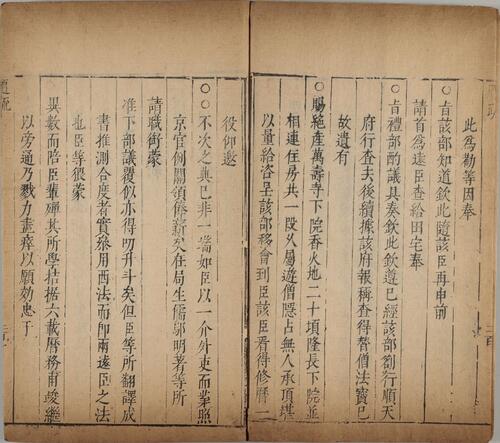 此爲勸等因奉
○旨該部知道欽此隨該臣再申前
請首爲遠臣查給田宅奉
○旨禮部酌議具奏欽此欽遵已經該部劄行順天
府行查去後續據該府報稱查得督僧法寶已
故遺有
○賜絶產萬壽寺下院香火地二十頃隆長下院並
相連住房共一段久屬遊僧隱占無人承頂堪
以量給咨呈該部移會到臣該臣看得修曆二
役仰邀
○○不次之典已非一端如臣以一介外吏而業照
京官例關領俸薪矣在局生儒鄔明著等所
請職銜蒙
准下部議覆似亦得叨升斗矣但臣等所翻譯成
書推測合度者實旅用西法而卽兩遠臣之法
也臣等猥蒙
異數而陪臣輩殫其所學拮据六載曆務甫竣繼
以旁通乃戮力盡瘁以願効忠于